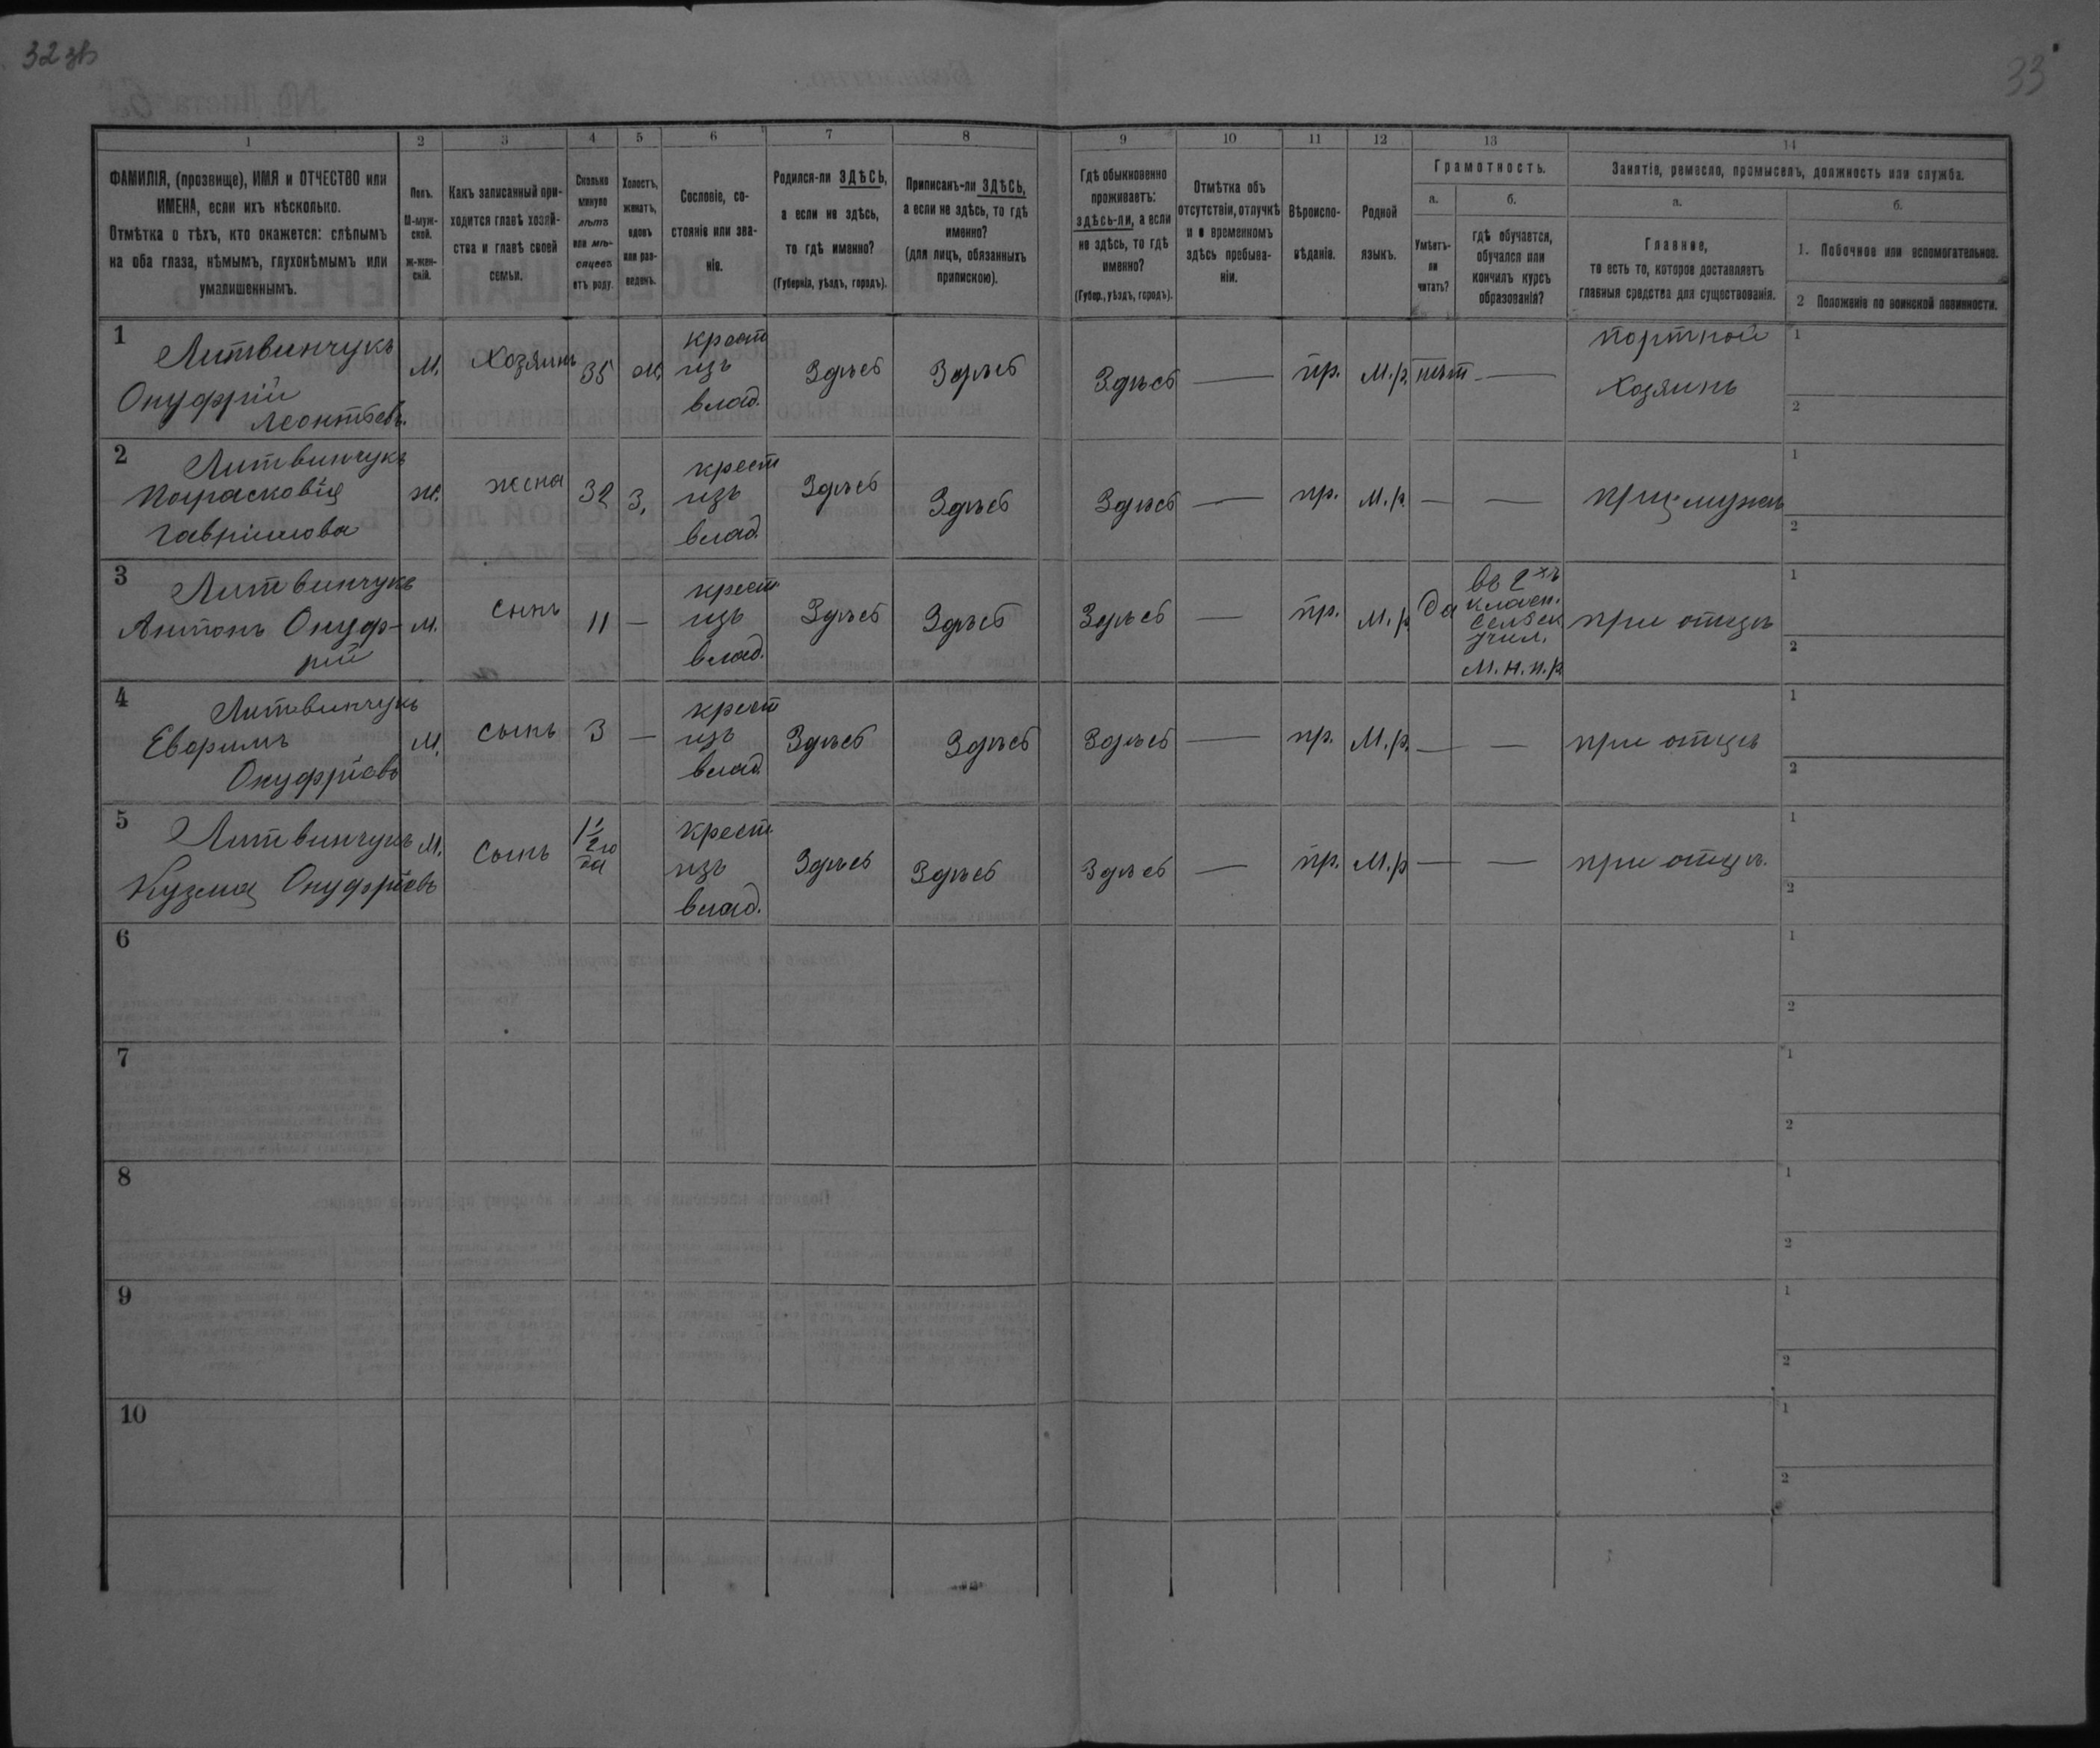 32 зв
33
1
2
3
4
5
6
7
8
9
10
11
12
13
14
ФАМИЛІЯ, (прозвище), ИМЯ и ОТЧЕСТВО или
ИМЕНА, если ихъ нѣсколько.
Отмѣтка о тѣхъ, кто окажется: слѣпымъ
на оба глаза, нѣмымъ, глухонѣмымъ или
умалишеннымъ.
Полъ.
М-муж-
ской.
ж-жен-
скій.
Какъ записанный при-
ходится главѣ хозяй-
ства и главѣ своей
семьи.
Сколько
минуло
лѣтъ
или мѣ-
сяцевъ
отъ роду.
Холостъ,
женатъ,
вдовъ
или раз-
веденъ.
Сословіе, со-
стояніе или зва-
ніе.
Родился-ли ЗДѢСЬ,
а если не здѣсь,
то гдѣ именно?
(Губернія, уѣздъ, городъ).
Приписанъ-ли ЗДѢСЬ,
а если не здѣсь, то гдѣ
именно?
(для лицъ, обязанныхъ
припискою).
Гдѣ обыкновенно
проживаетъ:
здѣсь-ли, а если
не здѣсь, то гдѣ
именно?
(Губер., уѣздъ, городъ).
Отмѣтка объ
отсутствіи, отлучкѣ
и о временномъ
здѣсь пребыва-
ніи.
Вѣроиспо-
вѣданіе.
Родной
языкъ.
Грамотность.
а.
Умѣетъ-
ли
читать?
б.
гдѣ обучается,
обучался или
кончилъ курсъ
образованія?
Занятіе, ремесло, промыселъ, должность или служба.
а.
Главное,
то есть то, которое доставляетъ
главныя средства для существованія.
б.
1. Побочное или вспомогательное.
2 Положеніе по воинской повинности.
1
Литвинчукъ
Онуфрій
Леонтьевъ.
М.
Хозяинъ
35
ж.
крест
изъ
влад.
Здѣсь
Здѣсь
Здѣсь
—
пр.
М.р.
нѣт
—
портной
Хозяинъ
1
2
2
Литвинчукъ
Гаврилова
ж.
жена
32
З.
крест
изъ
влад.
Здѣсь
Здѣсь
Здѣсь
—
пр.
М.р.
—
—
при мужѣ
1
2
3
Литвинчукъ
Антонъ Онуф-
рій
М.
сынъ
11
—
крест
изъ
влад.
Здѣсь
Здѣсь
Здѣсь
—
пр.
М.р
да
въ 2хъ
класн.
сельск
учил.
М.н.п.р
при отцѣ
1
2
4
Литвинчукъ
Онуфріевъ
М.
сынъ
3
—
крест
изъ
влад
Здѣсь
Здѣсь
Здѣсь
—
пр.
М.р.
—
—
при отцѣ
1
2
5
Литвинчукъ
Кузма Онуфріевъ
М.
сынъ
1½ го
да
крест
изъ
влад.
Здѣсь
Здѣсь
Здѣсь
—
пр.
М.р
—
—
при отцѣ.
1
2
6
1
2
7
1
2
8
1
2
9
1
2
10
1
2